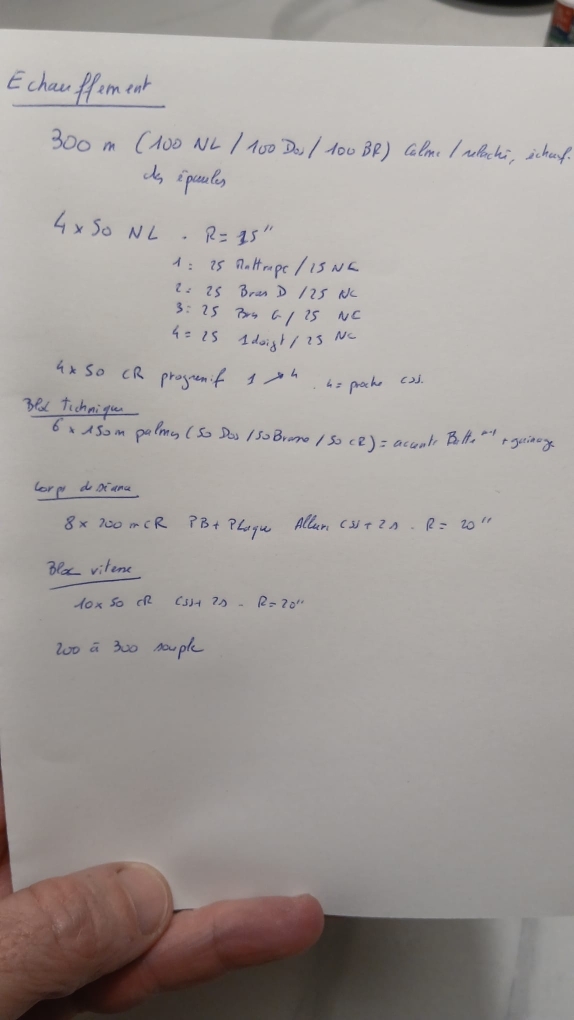 Echauffement
300 m (100 NL / 100 Dos / 100 BR) Calme / relaché, échauf.
des épaules
4 x 50 NL . R = 15"
1 : 25 Rattrape / 25 NC
2 : 25 Bras D / 25 NC
3 : 25 Bras G / 25 NC
4 = 25 1 doigt / 25 NC
4 x 50 CR progressif 1 ↗ 4 . 4 = proche CSS.
Bloc technique
6 x 150 m palmes (50 Dos / 50 Brasse / 50 CR) = + gainage
Corps de séance
8 x 200 m CR PB + Plaque Allure CSS + 2s - R = 20"
Bloc vitesse
10 x 50 CR CSS + 2s - R = 20"
200 à 300 souple